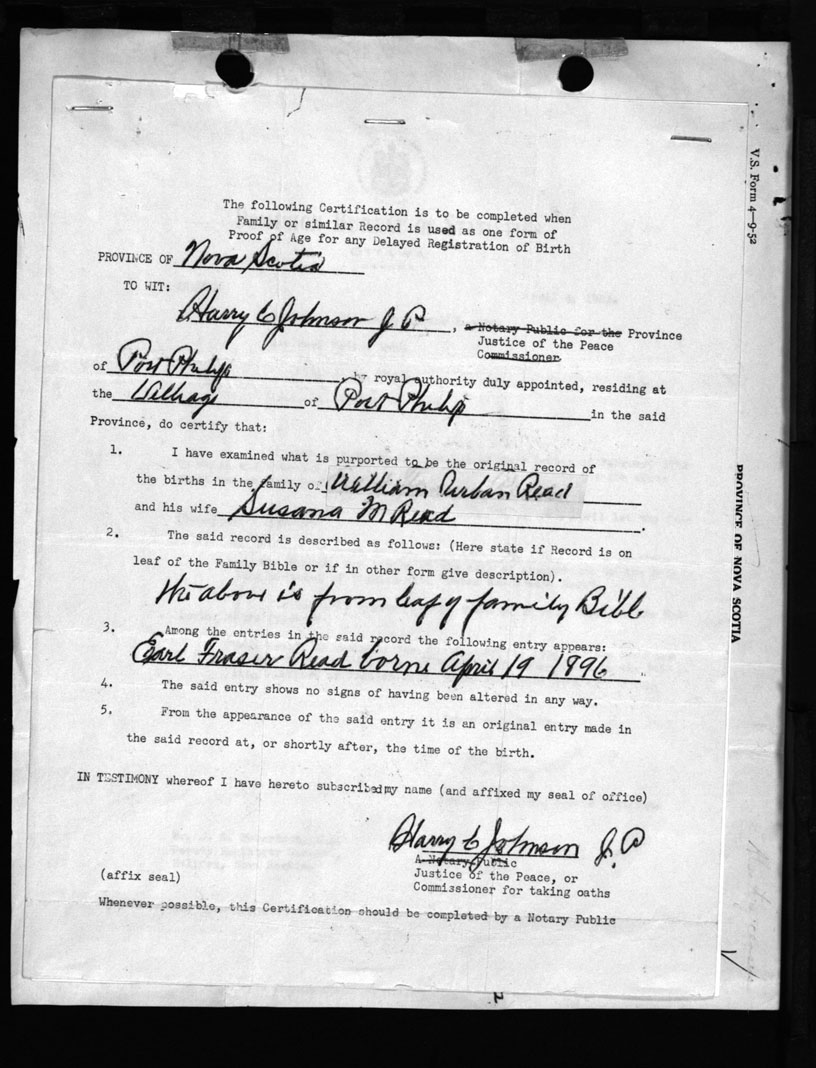 The following Certification is to be completed when
Family or similar Record is used as one form of
Proof of Age for any Delayed Registration of Birth
PROVINCE OF Nova Scotia
TO WIT:
Harry C Johnson J P, a Notary Public for the Province
Justice of the Peace
Commissioner.
of Port Philip, by royal authority duly appointed, residing at
the Village of Port Philip in the said
Province, do certify that:
1. I have examined what is purported to be the original record of
the births in the family of William Urban Read
and his wife Susana M Read.
2. The said record is described as follows: (Here state if Record is on
leaf of the Family Bible or if in other form give description).
the above is from leaf of family Bible
3. Among the entries in the said record the following entry appears:
Earl Fraser Read borne April 19 1896.
4. The said entry shows no signs of having been altered in any way.
5. From the appearance of the said entry it is an original entry made in
the said record at, or shortly after, the time of the birth.
IN TESTIMONY whereof I have hereto subscribed my name (and affixed my seal of office)
Harry C Johnson J. P
A Notary Public
Justice of the Peace, or
(affix seal) Commissioner for taking oaths
Whenever possible, this Certification should be completed by a Notary Public
V.S. Form 4—9-52
PROVINCE OF NOVA SCOTIA